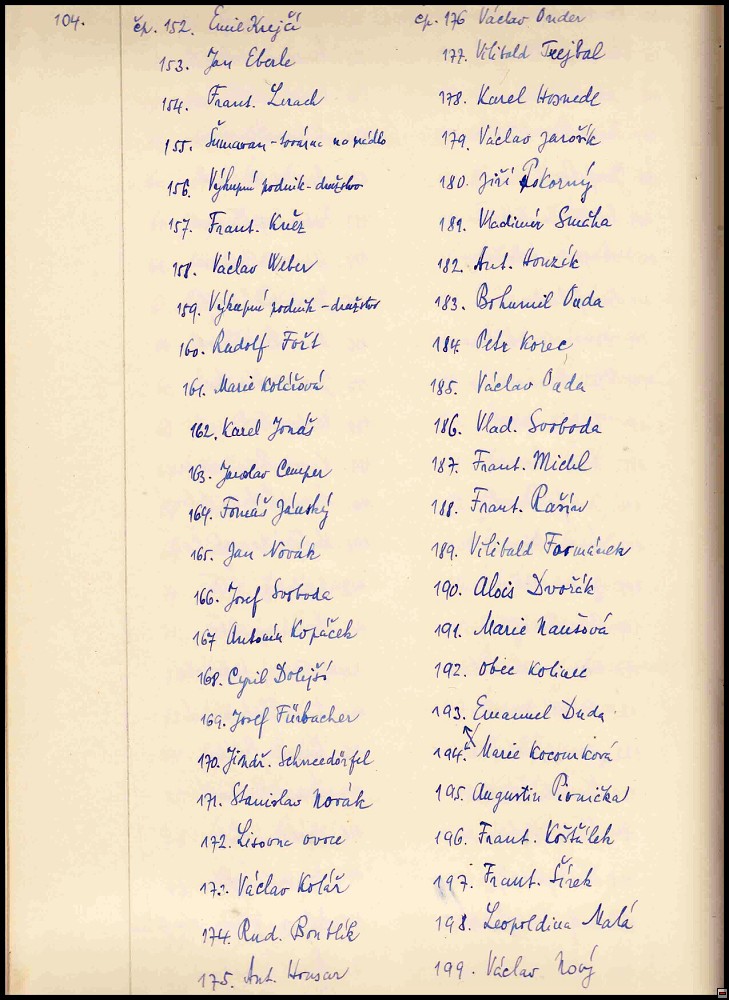 104.
čp. 152. Emil Krejčí
153. Jan Eberle
154. Frant. Lerach
155. Šumavan - továrna na mýdlo
156. Výkupní podnik - družstvo
157. Frant. Kněz
158. Václav Weber
159. Výkupní podnik - družstvo
160. Rudolf Fořt
161. Marie Kolářová
162. Karel Jonáš
163. Jaroslav Cemper
164. Tomáš Jánský
165. Jan Novák
166. Josef Svoboda
167 Antonín Kopáček
168. Cyril Dolejší
169. Josef Fürbacher
170. Jindř. Schneedörfel
171. Stanislav Novák
172. Lisovna ovoce
173. Václav Kolář
174. Rud. Boublík
175. Ant. Housar
čp. 176 Václav Duder
177. Vilibald Trejbal
178. Karel Hosnedl
179. Václav Jarošík
180. Jiří Pokorný
181. Vladimír Smaha
182. Ant. Houzík
183. Bohumil Duda
184. Petr Korec
185. Václav Duda
186. Vlad. Svoboda
187. Frant. Michl
188. Frant. Rašín
189. Vilibald Formánek
190. Alois Dvořák
191. Marie Naušová
192. Obec Kolinec
193. Emanuel Duda
194. Marie Kocourková
195. Augustin Pivnička
196. Frant. Košťálek
197. Frant. Šírek
198. Leopoldina Malá
199. Václav Nový